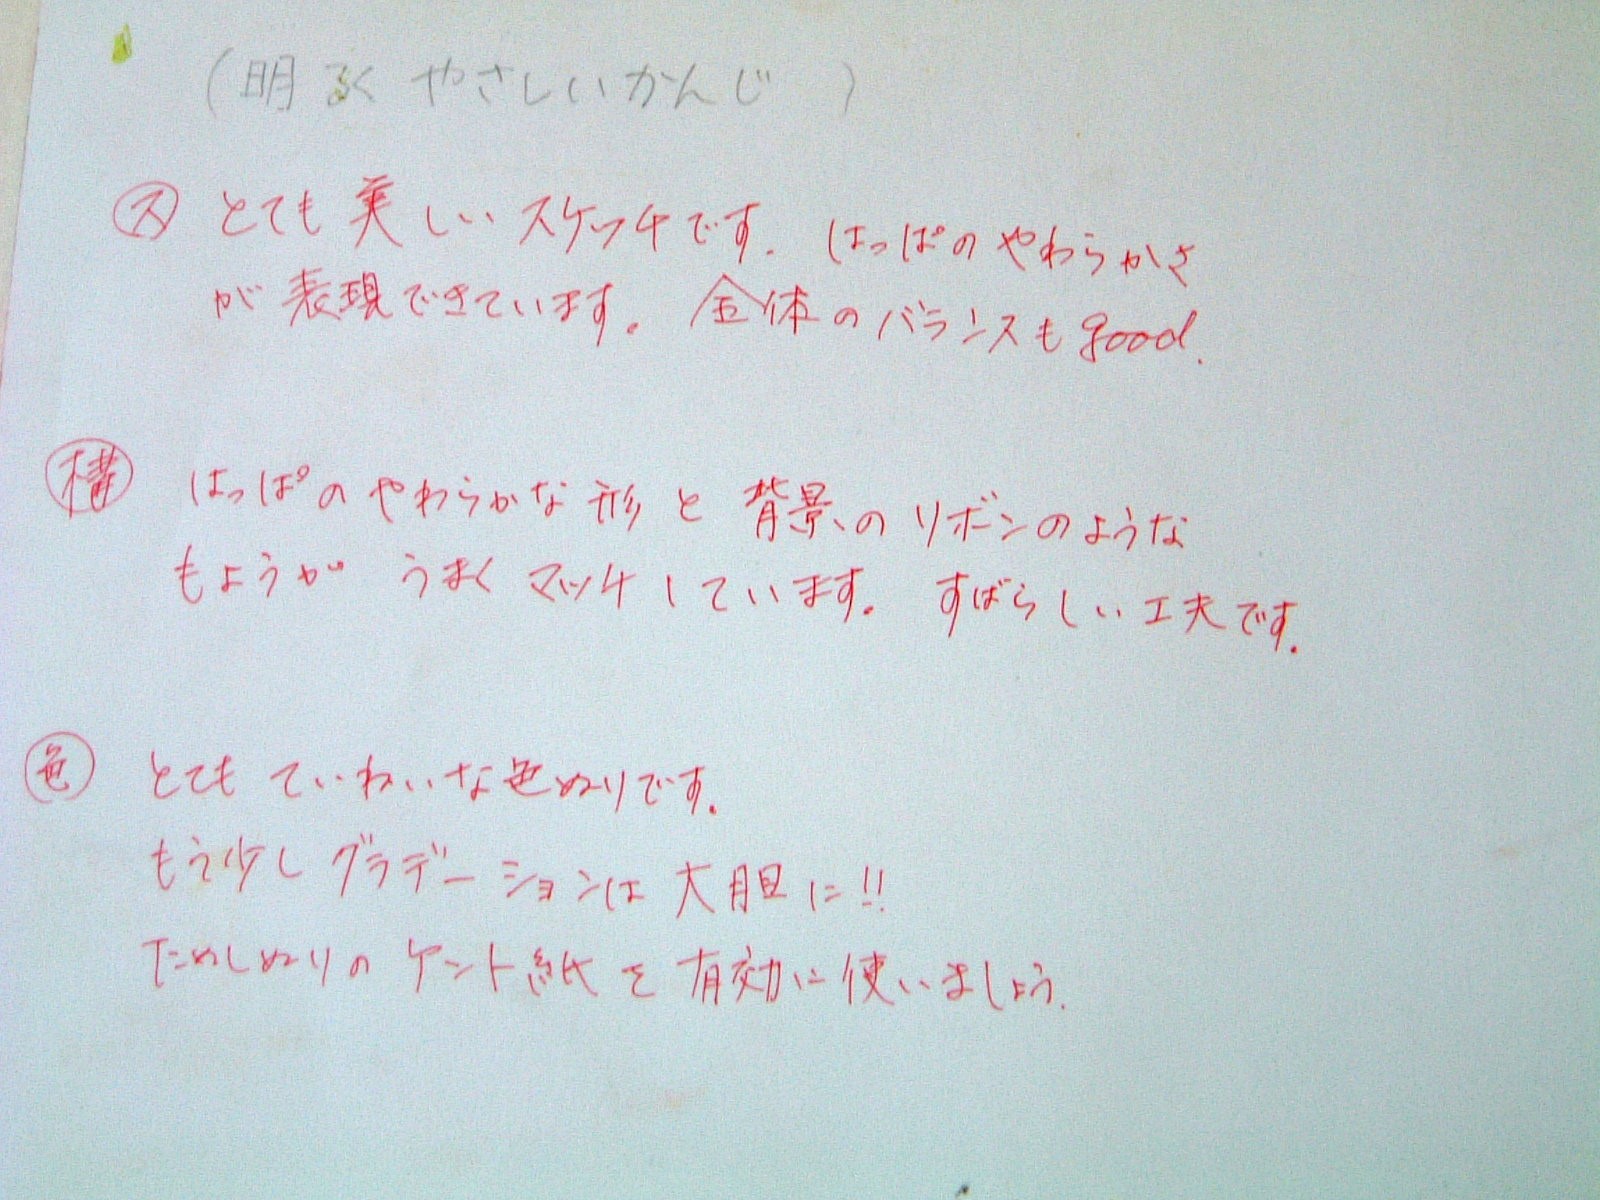 (明るくやさしいかんじ )
ス とても美しいスケッチです. はっぱのやわらかさ
が表現できています。全体のバランスもgood.
構 はっぱのやわらかな形と背景のリボンのような
もようがうまくマッチしています。すばらしい工夫です.
色 とてもていねいな色ぬりです.
もう少しグラデーションは大胆に!!
ためしぬりのケント紙を有効に使いましょう.